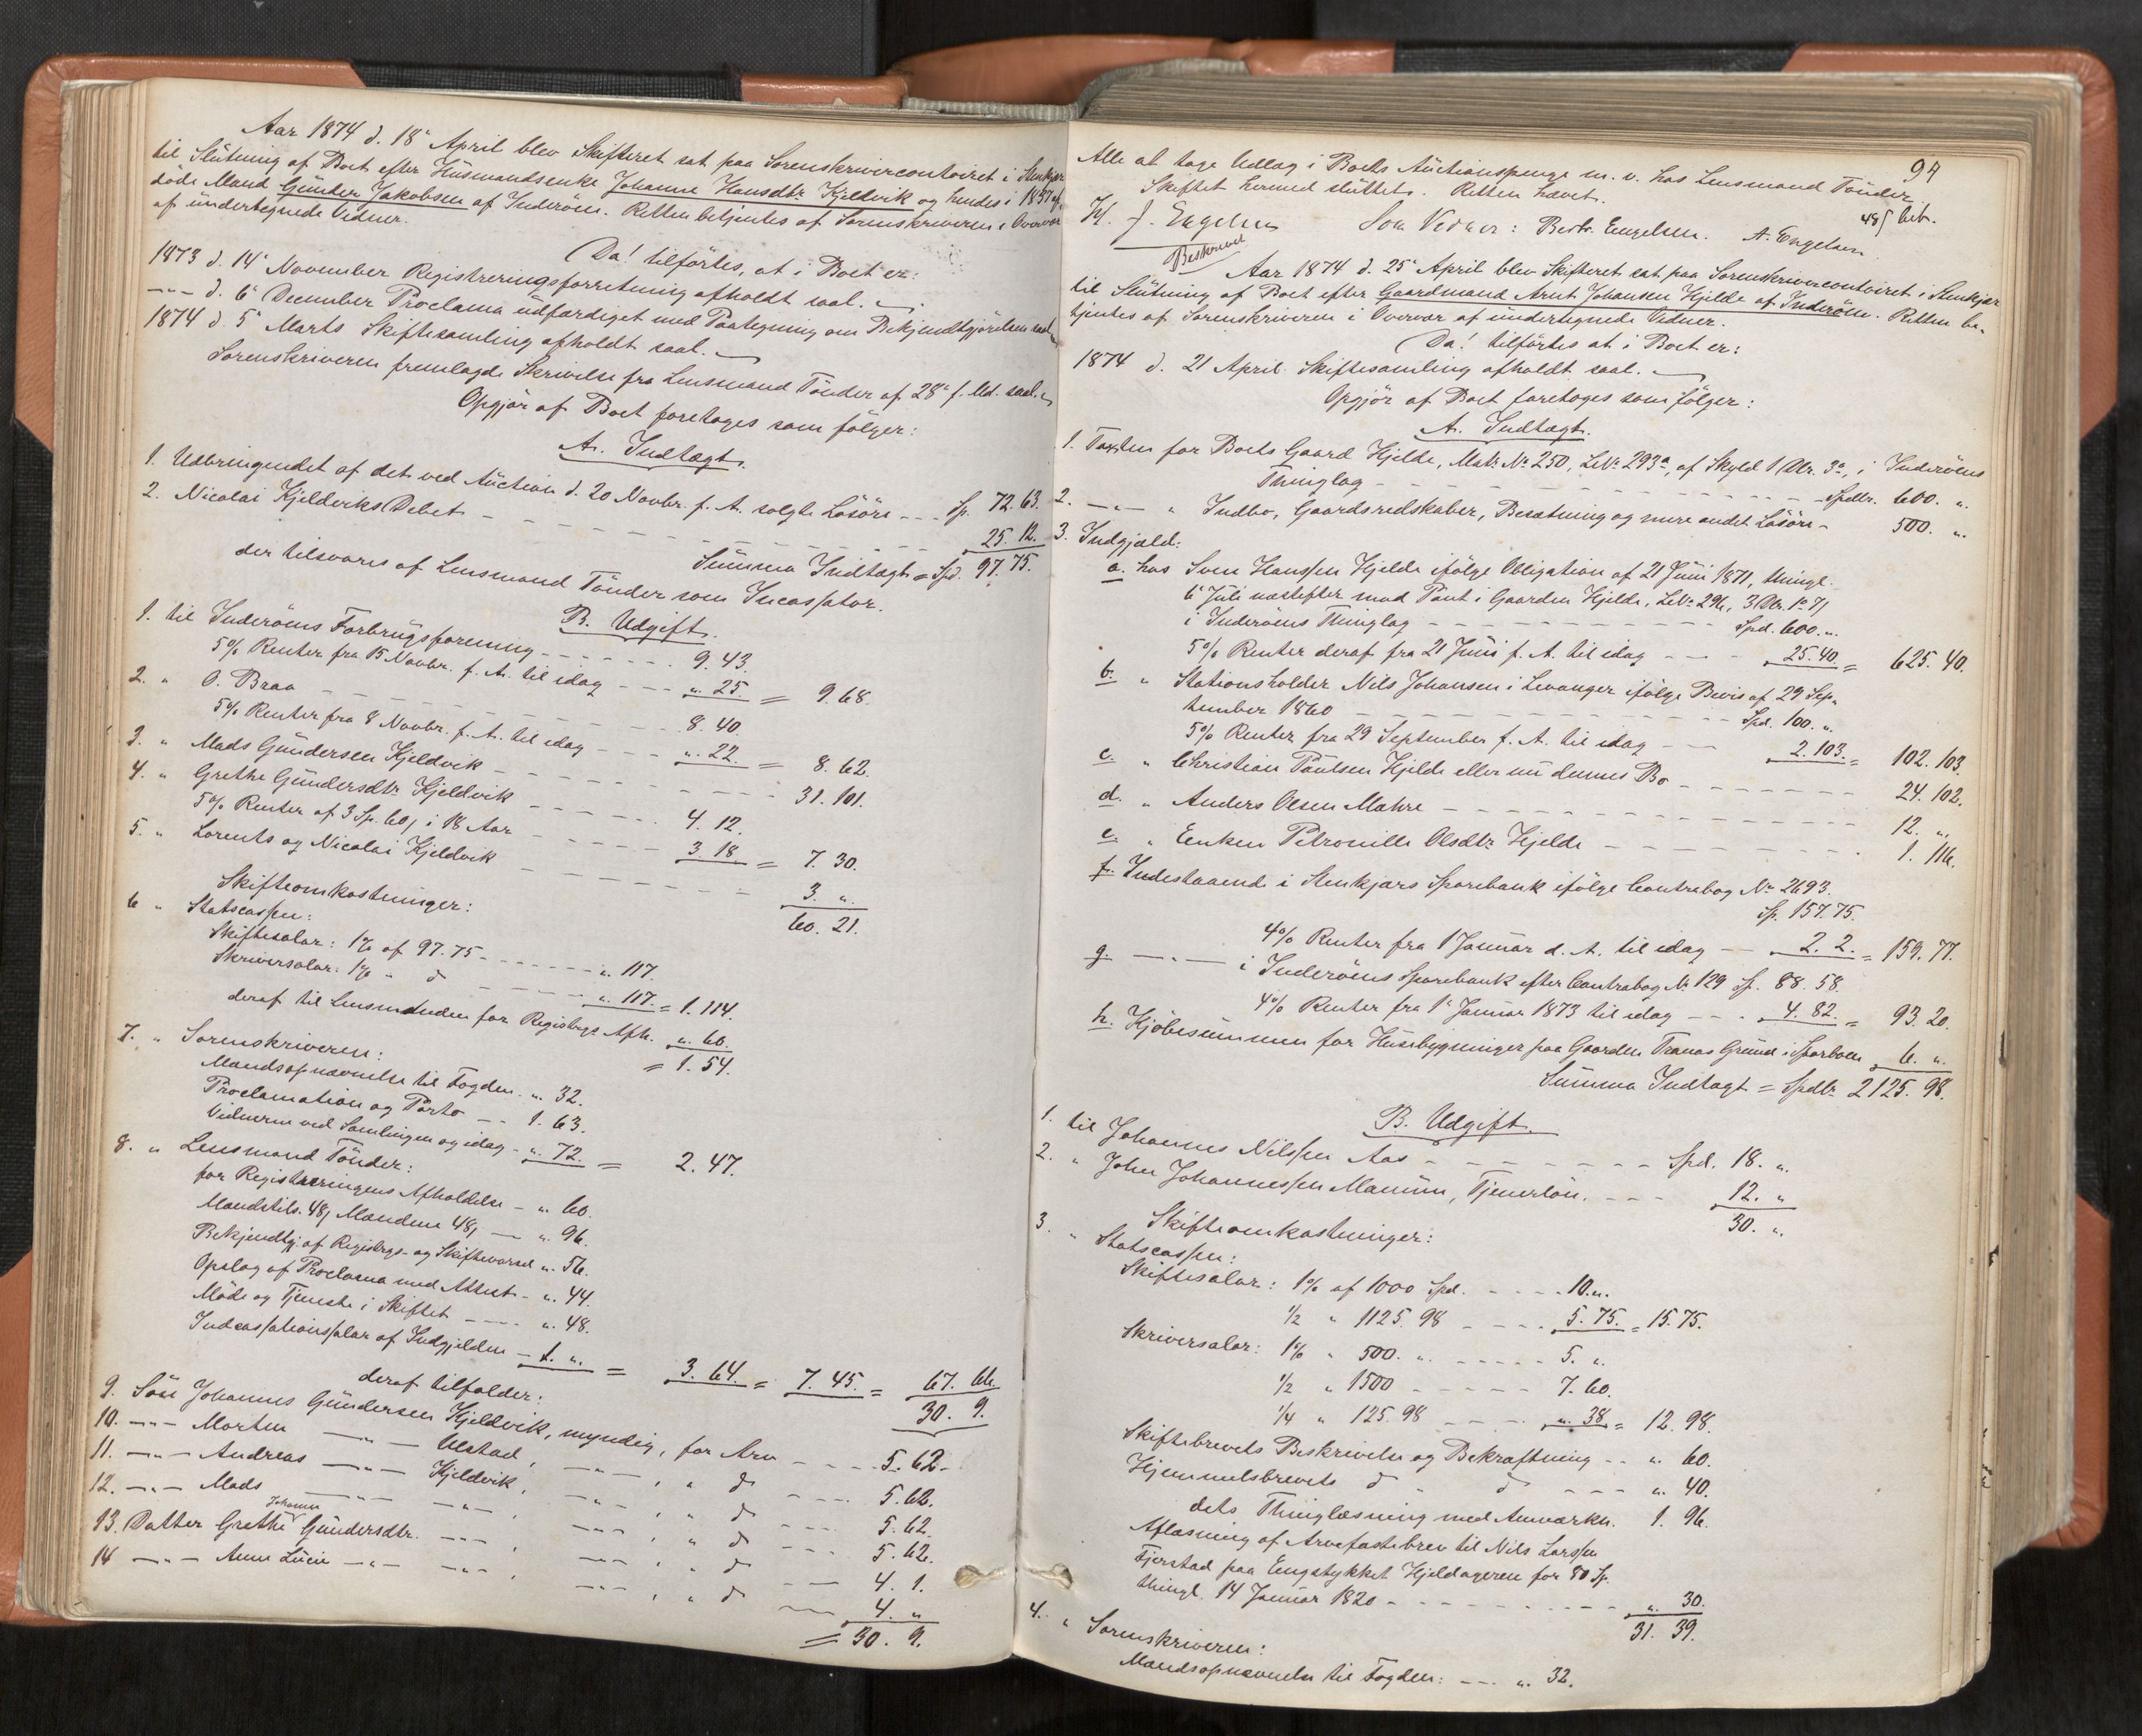 Aar 1874 d. 18de April blev Skifteret sat paa Sorenskrivercontoiret i Stenkjær
til Slutning af Boet efter Husmandsenke Johanne Hansdtr. Kjeldvik og hendes i 1857 af-
døde Mand Gunder Jakobsen af Inderöen. Retten betjentes af Sorenskriveren i Overvær
af undertegnede Vidner.
Da! tilførtes, at i Boet er:
1873 d. 14de November Registreringsforretning afholdt saal.
—„— d. 6te December Proclama udfærdiget med Paategning om Bekjendtgjörelsen saal.
1874 d. 5te Marts Skiftesamling afholdt saal.
Sorenskriveren fremlagde Skrivelse fra Lensmand Tönder af 28de f. Md. saal.
Opgjör af Boet foretoges som fölger:
A. Indtægt.
1. Udbringendet af det ved Auction d. 20 Novbr. f. A. solgte Lösöre - - - Sp. 72. 63.
2. Nicolai Kjeldviks Debet - - - - 25. 12.
Summa Indtægt = Spd. 97. 75.
der tilsvares af Lensmand Tönder som Incassator.
B. Udgift.
1. til Inderöens Forbrugsforening - - - - 9. 43.
5% Renter fra 15 Novbr. f. A. til idag - - - „. 25. = 9. 68.
2. „ O. Braa - - - - 8. 40.
5% Renter fra 8 Novbr. f. A. til idag - - - „. 22. = 8. 62.
3. „ Mads Gundersen Kjeldvik - - - - 31. 101.
4. „ Grethe Gundersdtr. Kjeldvik - - - - 4. 12.
5% Renter af 3 Sp. 60 ß i 18 Aar - - - 3 18. = 7. 30.
5. „ Lorents og Nicolai Kjeldvik - - - - 3. „.
60. 21.
Skifteomkostninger:
6 „ Statscassen:
Skiftesalær: 1% af 97. 75 - - - - „. 117.
Skriversalær: 1% „ d - - - - „. 117. = 1. 114.
deraf til Lensmanden for Registrgs Afh. „. 60.
= 1. 54.
7. „ Sorenskriveren:
Mandsopnævnelse til Fogden „. 32.
Proclamation og Porto - - 1. 63.
Vidnerne ved Samlingen og idag - „. 72. = 2. 47.
8. „ Lensmand Tönder:
for Registreringens Afholdelse - „. 60.
Mandstils. 48 ß, Mændene 48 ß — „. 96.
Bekjendtgj. af Registrgs- og Skiftevarsel „. 56.
Opslag af Proclama med Attest - „. 44.
Möde og Tjeneste i Skiftet - - - „. 48.
Indcassationssalær af Indgjælden - 1. „. = 3. 64. = 7. 45. = 67. 66.
30. 9.
deraf tilfalder:
9. Sön Johannes Gundersen Kjeldvik, myndig, for Arv - - - - 5. 62.
10. —„— Morten —„— Ulstad, —„—, „ d - - - 5. 62.
11. —„— Andreas —„— Kjeldvik, —„—, „ d - - - 5. 62.
12. —„— Mads —„— —„—, —„—, „ d - - - 5. 62.
Johanna
13. Datter Grethe Gundersdtr. —„—, —„—, „ d — 4. 1.
14 —„— Anne Lucie —„— —„—, —„—, „ d — 4. „
= 30. 9.
94
Alle at tage Udlæg i Boets Auctionspenge m. v. hos Lensmand Tönder
Skiftet hermed sluttet. Retten hævet.
48 ß bet.
J. Engelsen Som Vidner: Bertr. Engelsen. A. Engelsen
Beskrevet
Aar 1874 d. 25de April blev Skifteret sat paa Sorenskrivercontoiret i Stenkjær
til Slutning af Boet efter Gaardmand Arnt Johansen Hjelde af Inderöen. Retten be-
tjentes af Sorenskriveren i Overvær af undertegnede Vidner.
Da! tilförtes at i Boet er:
1874 d. 21 April Skiftesamling afholdt saal.
Opgjör af Boet foretoges som fölger:
A. Indtægt.
1. Taxten for Boets Gaard Hjelde, Matr. No 250, LNo 293a, af Skyld 1 Dlr. 3ß, i Inderöens
Thinglag - - - - Spdlr. 600. „.
2. —„— „ Indbo, Gaardsredskaber, Besætning og mere andet Lösöre - 500. „.
3. Indgjæld:
a. hos Sven Hanssen Hjelde ifölge Obligation af 21 Juni 1871, thingl.
6te Juli næstefter mod Pant i Gaarden Hjelde, LNo 296, 3 Dlr. 1o 7ß
i Inderöens Thinglag - - - - Spd. 600. „.
5% Renter deraf fra 21 Juni f. A. til idag - - - 25. 40. = 625. 40.
b. „ Stationsholder Nils Johansen i Levanger ifölge Bevis af 29 Sep-
tember 1860 - - - - Spd. 100. „.
5% Renter fra 29 September f. A. til idag - - - 2. 103. = 102. 103.
c. „ Christian Paulsen Hjelde eller nu dennes Bo - - - - 24. 102.
d. „ Anders Olsen Mahre - - - - 12. „.
e. „ Enken Petronille Olsdtr. Hjelde - - - - 1. 116.
f. Indestaaende i Stenkjærs Sparebank ifölge Contrabog No 2693.
Sp. 157. 75.
4% Renter fra 1 Januar d. A. til idag — 2. 2. = 159. 77.
g. —„— i Inderöens Sparebank efter Contrabog No 129 Sp. 88. 58.
4% Renter fra 1de Januar 1873 til idag - - - 4. 82. = 93. 20.
h. Kjöbesummen for Husebygninger paa Gaarden Tranas Grund i Sparboen 6. „.
Summa Indtægt = Spdlr. 2125. 98.
B. Udgift.
1. til Johannes Nilssen Aas - - - - Spd. 18. „.
2. „ John Johannessen Mannum, Tjenerlön. - - - 12. „
30. „.
Skifteomkostninger:
3. „ Statscassen:
Skiftesalær: 1% af 1000 Spd. - - - - 10. „.
1/2 „ 1125. 98 - - - - 5. 75. = 15. 75.
Skriversalær: 1% „ 500. „. - - - - 5. „.
1/2 „ 1500 - - - - 7. 60.
1/4 „ 125. 98 - - - „. 38 = 12. 98.
Skiftebrevets Beskrivelse og Bekræftning - - „. 60.
Hjemmelsbrevets d „ d - - - „. 40.
dets Thinglæsning med Anmærkn. 1. 96.
Aflæsning af Arvefæstebrev til Nils Larssen
Fjerstad paa Engstykket Hjeldageren for 80 Sp.
thingl. 14 Januar 1820 - - - - „. 30.
31. 39.
4. „ Sorenskriveren:
Mandsopnævnelse til Fogden: - - - „. 32.